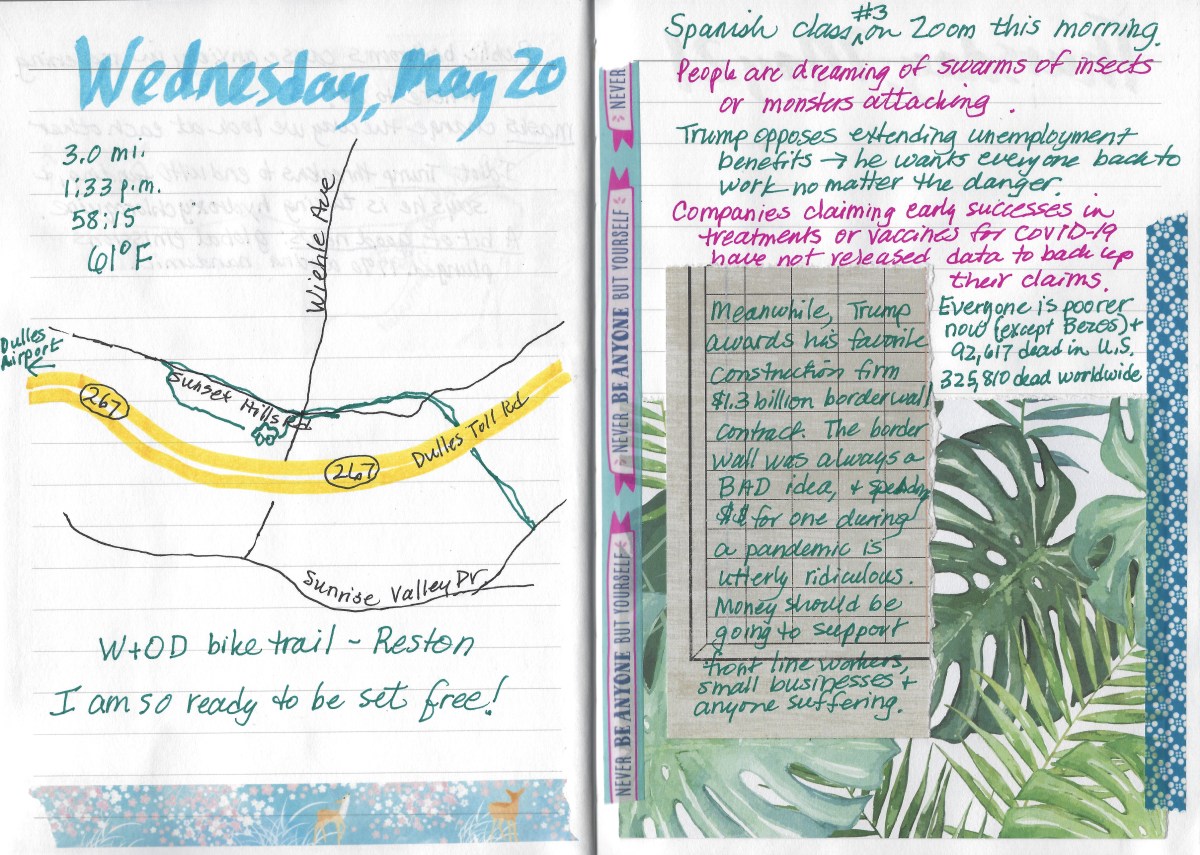 Wednesday, May 20
3.0 mi.
1:33 p.m.
58:15
61°F
Wiehle Ave
Dulles
Airport
267
Sunset Hills Rd
267
Dulles Toll Rd
Sunrise Valley Dr.
W+OD bike trail ~ Reston
I am so ready to be set free!
Spanish class #3 on Zoom this morning.
People are dreaming of swarms of insects
or monsters attacking.
Trump opposes extending unemployment
benefits → he wants everyone back to
work no matter the danger.
Companies claiming early successes in
treatments or vaccines for COVID-19
have not released data to back up
their claims.
Everyone is poorer
now (except Bezos) +
92,617 dead in U.S.
325,810 dead worldwide
Meanwhile, Trump
awards his favorite
construction firm
$1.3 billion border wall
contract. The border
wall was always a
BAD idea, + spending
$$ for one during
a pandemic is
utterly ridiculous.
Money should be
going to support
front line workers,
small businesses +
anyone suffering.
NEVER BE ANYONE BUT YOURSELF
NEVER BE ANYONE BUT YOURSELF
NEVER